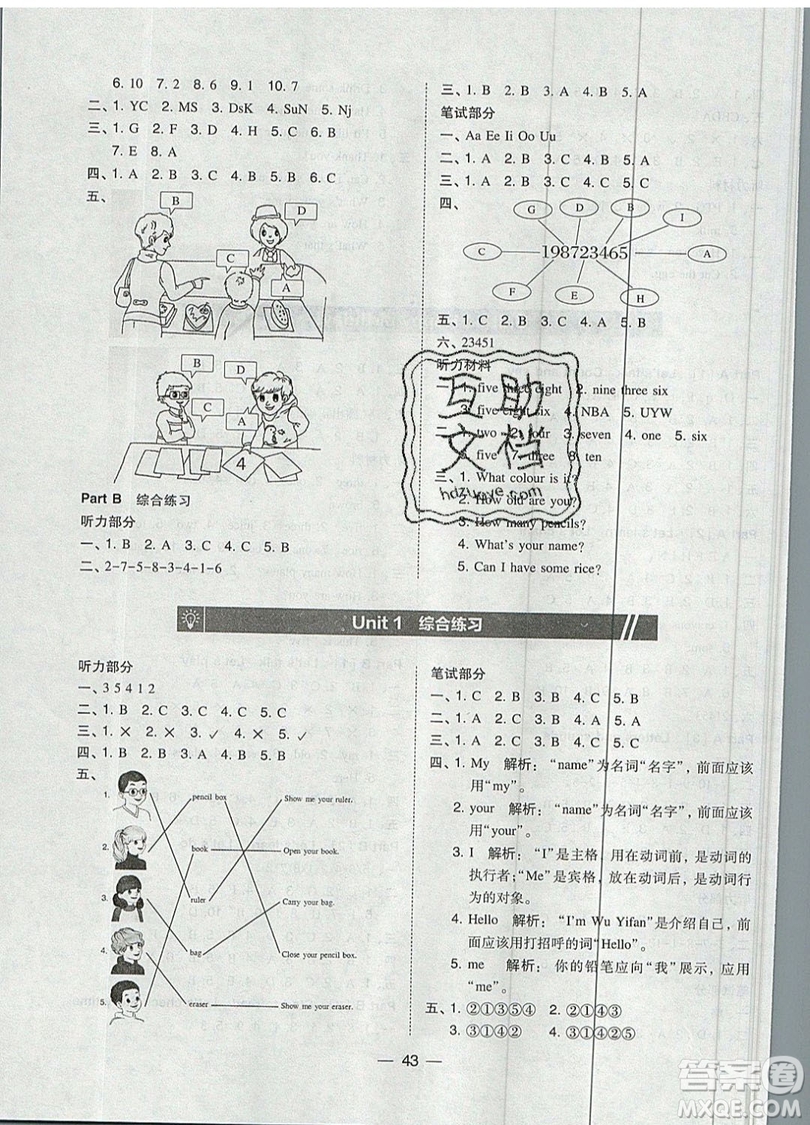 6. 10 7. 2 8. 6 9. 1 10. 7
二、1. YC 2. MS 3. DsK 4. SuN 5. Nj
三、1. G 2. F 3. D 4. H 5. C 6. B
7. E 8. A
四、1. A 2. A 3. C 4. A 5. B 6. C
五、
B
D
C
A
B
C
D
A
4
Part B 综合练习
听力部分
一、1. B 2. A 3. C 4. C 5. B
二、2-7-5-8-3-4-1-6
三、1. B 2. B 3. A 4. B 5. A
笔试部分
一、Aa Ee Ii Oo Uu
二、1. A 2. B 3. C 4. B 5. B
三、1. A 2. B 3. C 4. A 5. C
四、
G
D
B
I
C
198723465
A
F
E
H
五、1. C 2. B 3. A 4. A 5. B
六、23451
听力材料
一、1. five three eight 2. nine three six
3. five eight six 4. NBA 5. UYW
二、1. two 2. four 3. seven 4. one 5. six
6. five 7. three 8. ten
三、1. What colour is it?
2. How old are you?
3. How many pencils?
4. What's your name?
5. Can I have some rice?
互助
文档
hdzuoye.com
Unit 1 综合练习
听力部分
一、3 5 4 1 2
二、1. B 2. C 3. A 4. C 5. C
三、1. × 2. × 3. ✓ 4. × 5. ✓
四、1. B 2. B 3. A 4. B 5. B
五、
1. pencil box Show me your ruler.
2. book Open your book.
3. ruler Carry your bag.
4. bag Close your pencil box.
5. eraser Show me your eraser.
笔试部分
一、1. C 2. B 3. B 4. C 5. B
二、1. A 2. B 3. B 4. A 5. A
三、1. A 2. C 3. B 4. C 5. B
四、1. My 解析：“name”为名词“名字”，前面应该
用“my”。
2. your 解析：“name”为名词“名字”，前面应该
用“your”。
3. I 解析：“I”是主格，用在动词前，是动词的
执行者；“Me”是宾格，放在动词后，是动词行
为的对象。
4. Hello 解析：“I'm Wu Yifan”是介绍自己，前
面应该用打招呼的词“Hello”。
5. me 解析：你的铅笔应向“我”展示，应用
“me”。
五、1. ②①③⑤④ 2. ②①④③
3. ③①④② 4. ③①④②⑤
43
答案圈
MXQE.COM